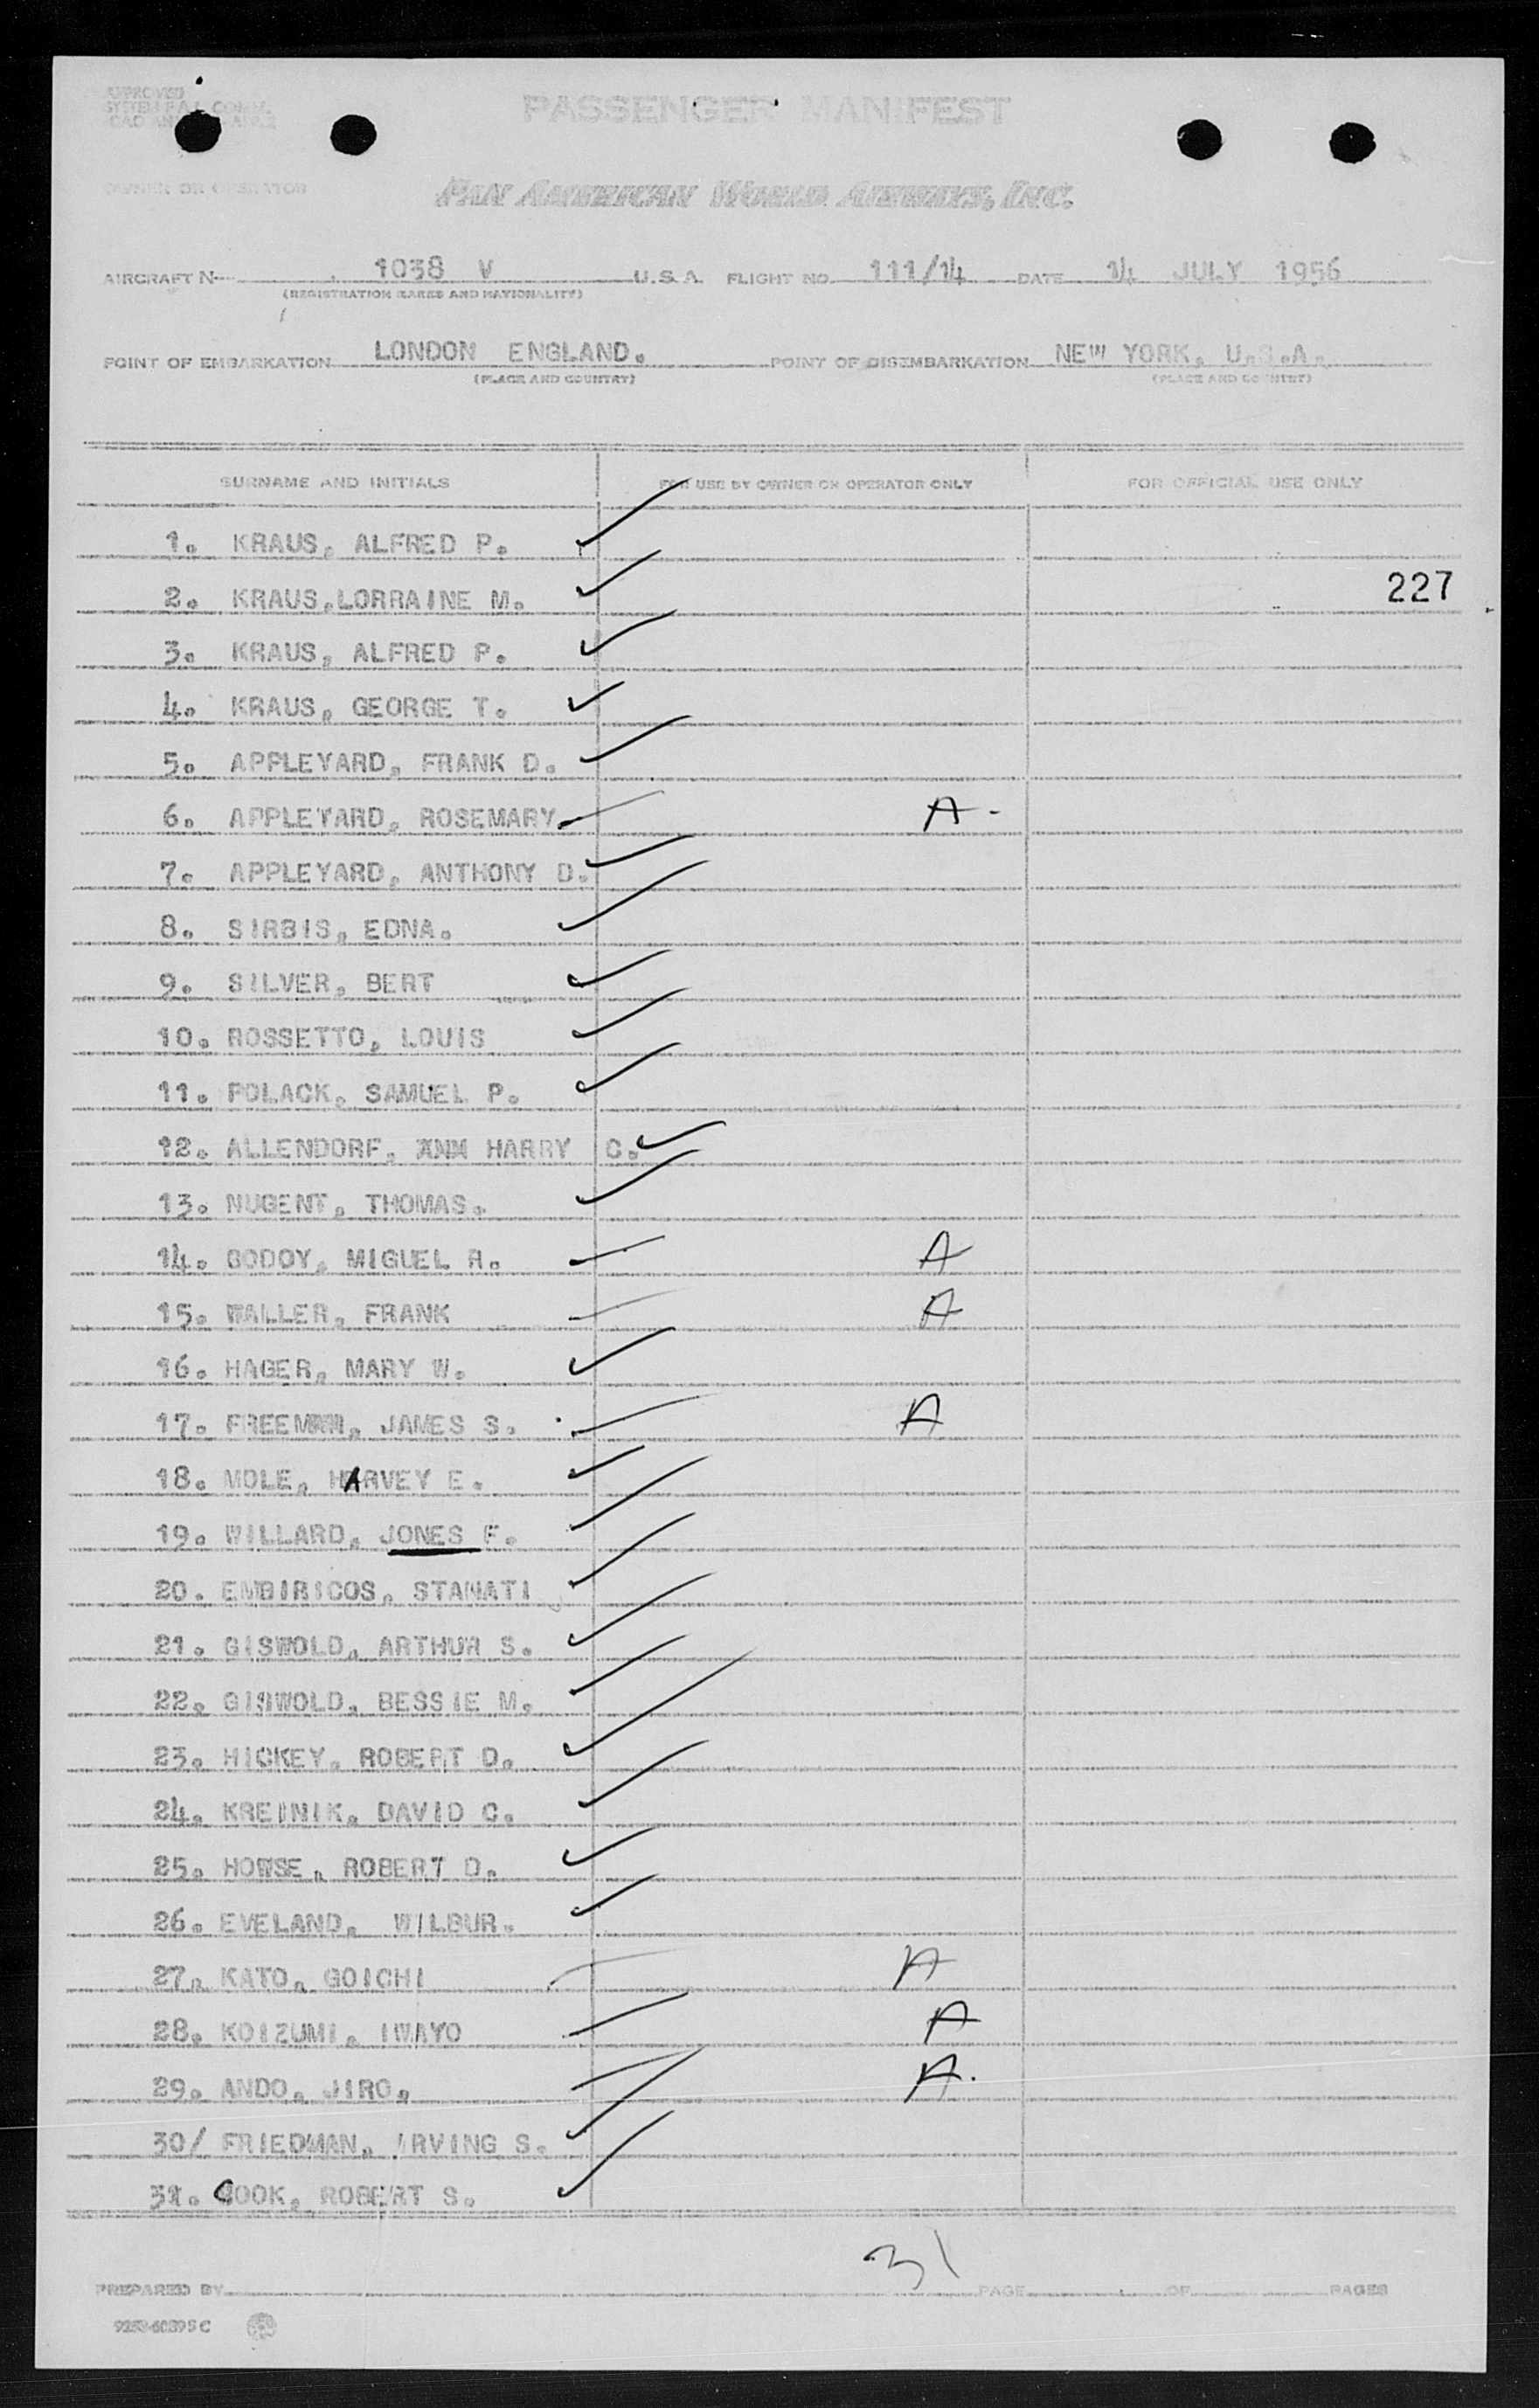 APPROVED
PASSENGER MANIFEST
OWNER OR OPERATOR
PAN AMERICAN WORLD AIRWAYS, INC.
AIRCRAFT N 1038 V U.S.A. FLIGHT NO. 111/14 DATE 14 JULY 1956
(REGISTRATION MARKS AND NATIONALITY)
POINT OF EMBARKATION LONDON ENGLAND. POINT OF DISEMBARKATION NEW YORK, U.S.A.
(PLACE AND COUNTRY) (PLACE AND COUNTRY)
SURNAME AND INITIALS FOR USE BY OWNER OR OPERATOR ONLY FOR OFFICIAL USE ONLY
1. KRAUS, ALFRED P.
2. KRAUS,LORRAINE M. 227
3. KRAUS, ALFRED P.
4. KRAUS, GEORGE T.
5. APPLEYARD, FRANK D.
6. APPLEYARD, ROSEMARY. A -
7. APPLEYARD, ANTHONY D.
8. SIRBIS, EDNA.
9. SILVER, BERT
10. ROSSETTO, LOUIS
11. POLACK, SAMUEL P.
12. ALLENDORF, HARRY C.
13. NUGENT, THOMAS.
14. GODOY, MIGUEL R. A
15. WALLER, FRANK A
16. HAGER, MARY W.
17. FREEMAN, JAMES S. A
18. MOLE, HARVEY E.
19. WILLARD, JONES F.
20. EMBIRICOS, STANATI
21. GISWOLD, ARTHUR S.
22. GISWOLD, BESSIE M.
23. HICKEY, ROBERT D.
24. KREINIK, DAVID C.
25. HOWSE, ROBERT D.
26. EVELAND, WILBUR.
27. KATO, GOICHI A
28. KOIZUMI, IWAYO A
29. ANDO, JIRO, A.
30/ FRIEDMAN, IRVING S.
31. COOK, ROBERT S.
31
PREPARED BY PAGE OF PAGES